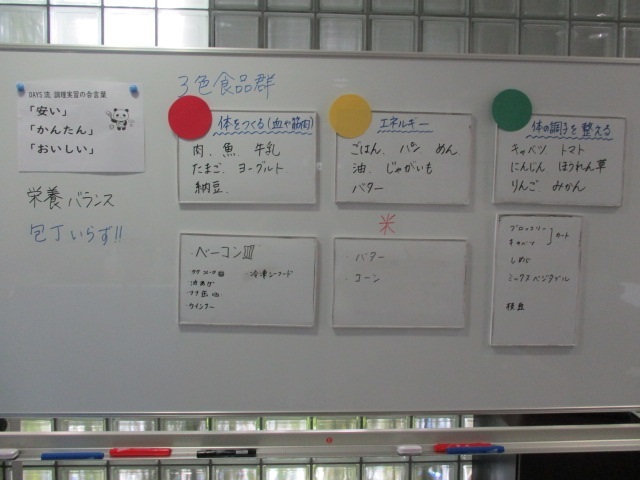 DAYS流 調理実習の合言葉
「安い」
「かんたん」
「おいしい」
栄養バランス
包丁いらず!!
3色食品群
体をつくる(血や筋肉)
肉、魚 牛乳
たまご、ヨーグルト
納豆
エネルギー
ごはん、パン めん、
油、じゃがいも
バター
体の調子を整える
キャベツ トマト
にんじん ほうれん草
りんご みかん
・ベーコン
・冷凍シーフード
・ツナ缶
・ウインナー
米
・バター
・コーン
ブロッコリー
キャベツ
カット
しめじ
ミックスベジタブル
枝豆